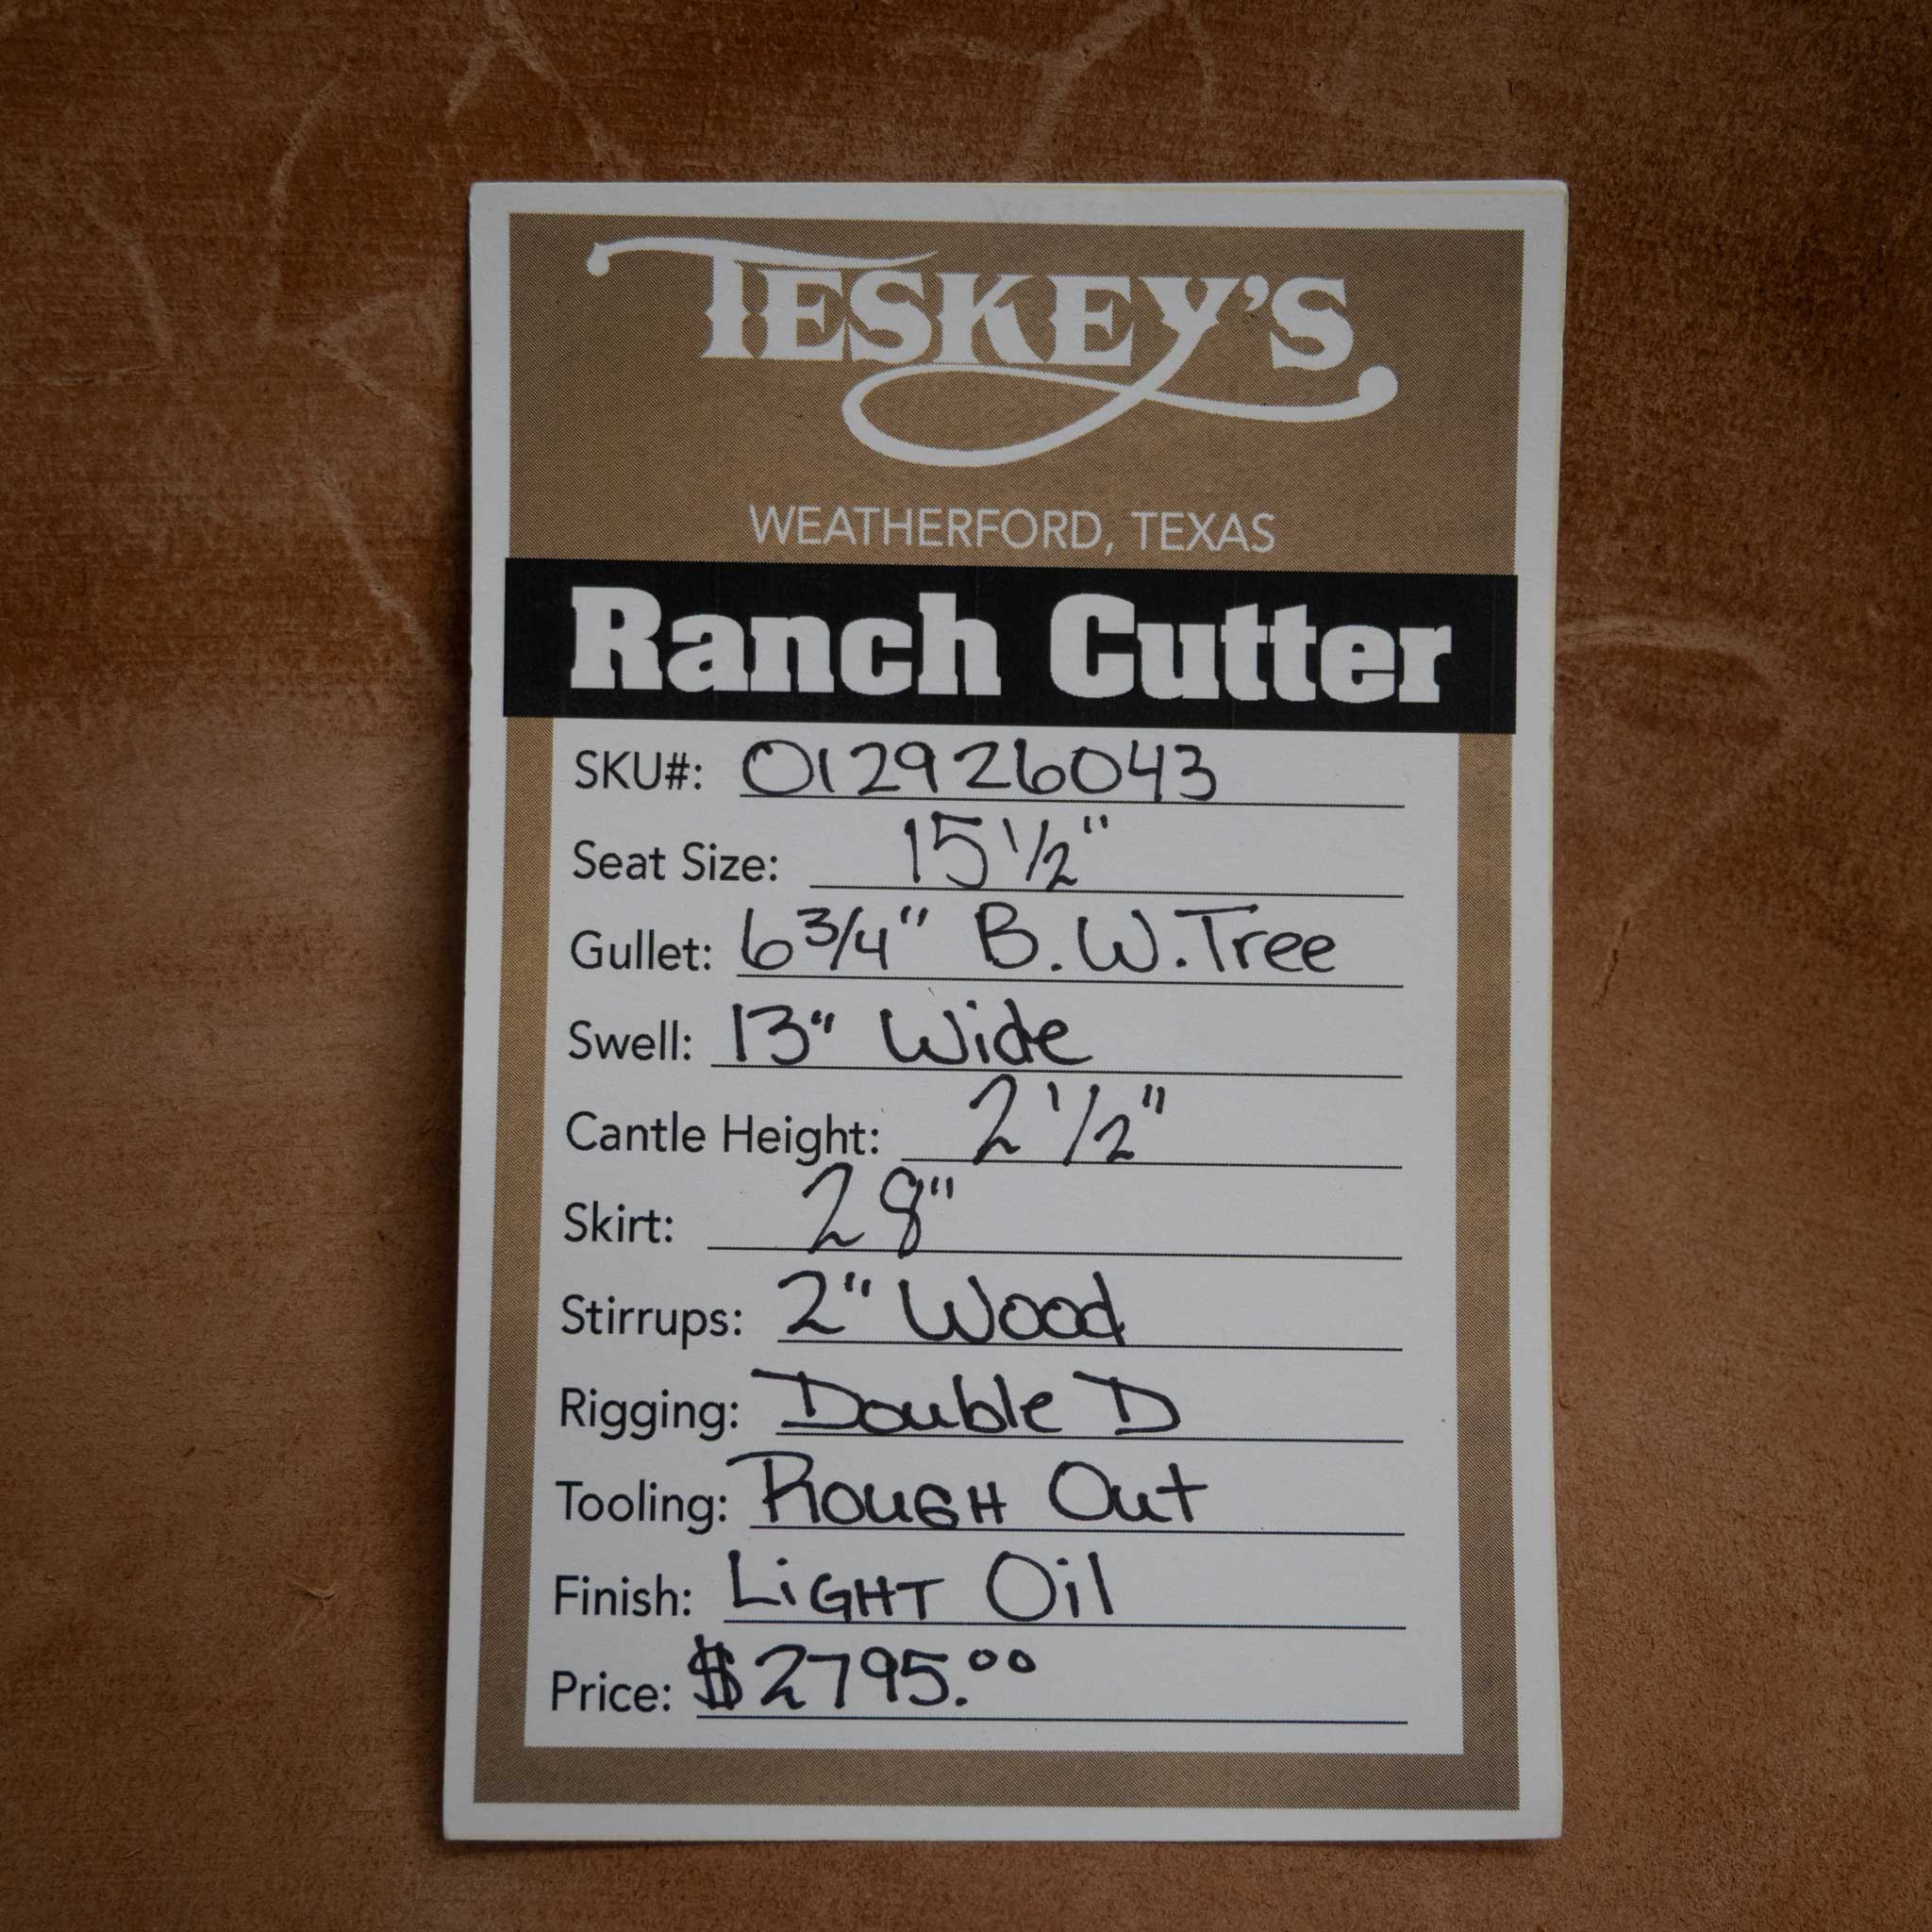 TESKEY'S
WEATHERFORD, TEXAS
Ranch Cutter
SKU#: 012926043
Seat Size: 15 1/2"
Gullet: 6 3/4" B.W. Tree
Swell: 13" Wide
Cantle Height: 2 1/2"
Skirt: 28"
Stirrups: 2" Wood
Rigging: Double D
Tooling: Rough Out
Finish: Light Oil
Price: $2795.00